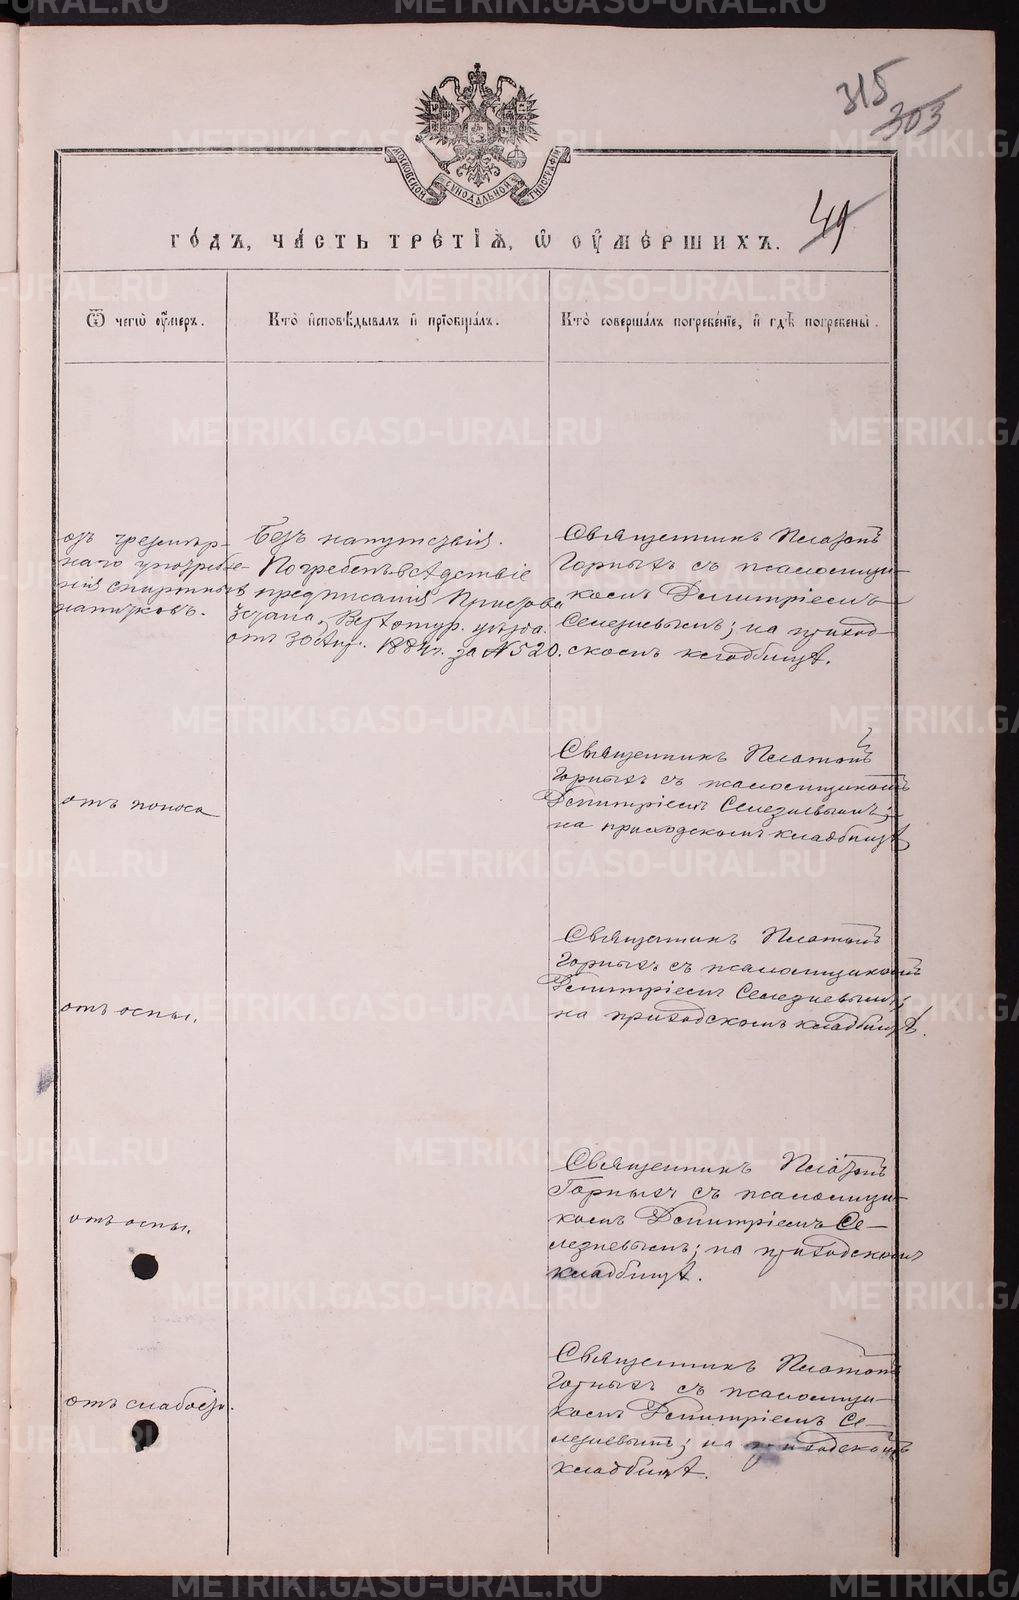 315
303
МОСКОВСКОЙ СѴНОДАЛЬНОЙ ТИПОГРАФІИ
49
ГО́ДЪ, ЧА́СТЬ ТРЕ́ТІѦ, Ѡ ОУ҆МЕ́РШИХЪ.
Ѿ чегѡ̀ оу҆́меръ.
Кто̀ и҆сповѣ́дывалъ и҆ прїобща́лъ.
Кто̀ соверша́лъ погребе́нїе, и҆ гдѣ̀ погребены̀.
отъ чрезмѣр-
наго употребле-
нія спиртныхъ
напитковъ.
Безъ напутствія.
Погребенъ вслѣдствіе
предписанія Пристава
3 стана, Верхотур. уѣзда
отъ 30 Апр. 1884 г. за № 520.
Священникъ Платонъ
Горныхъ съ псаломщи-
комъ Димитріемъ
Селезневымъ; на приход-
скомъ кладбищѣ.
отъ поноса
Священникъ Платонъ
Горныхъ съ псаломщикомъ
Димитріемъ Селезневымъ;
на приходскомъ кладбищѣ
отъ оспы.
Священникъ Платонъ
Горныхъ съ псаломщикомъ
Димитріемъ Селезневымъ;
на приходскомъ кладбищѣ.
отъ оспы.
Священникъ Платонъ
Горныхъ съ псаломщи-
комъ Димитріемъ Се-
лезневымъ; на приходскомъ
кладбищѣ.
отъ слабости.
Священникъ Платонъ
Горныхъ съ псаломщи-
комъ Димитріемъ Се-
лезневымъ; на приходскомъ
кладбищѣ.
METRIKI.GASO-URAL.RU